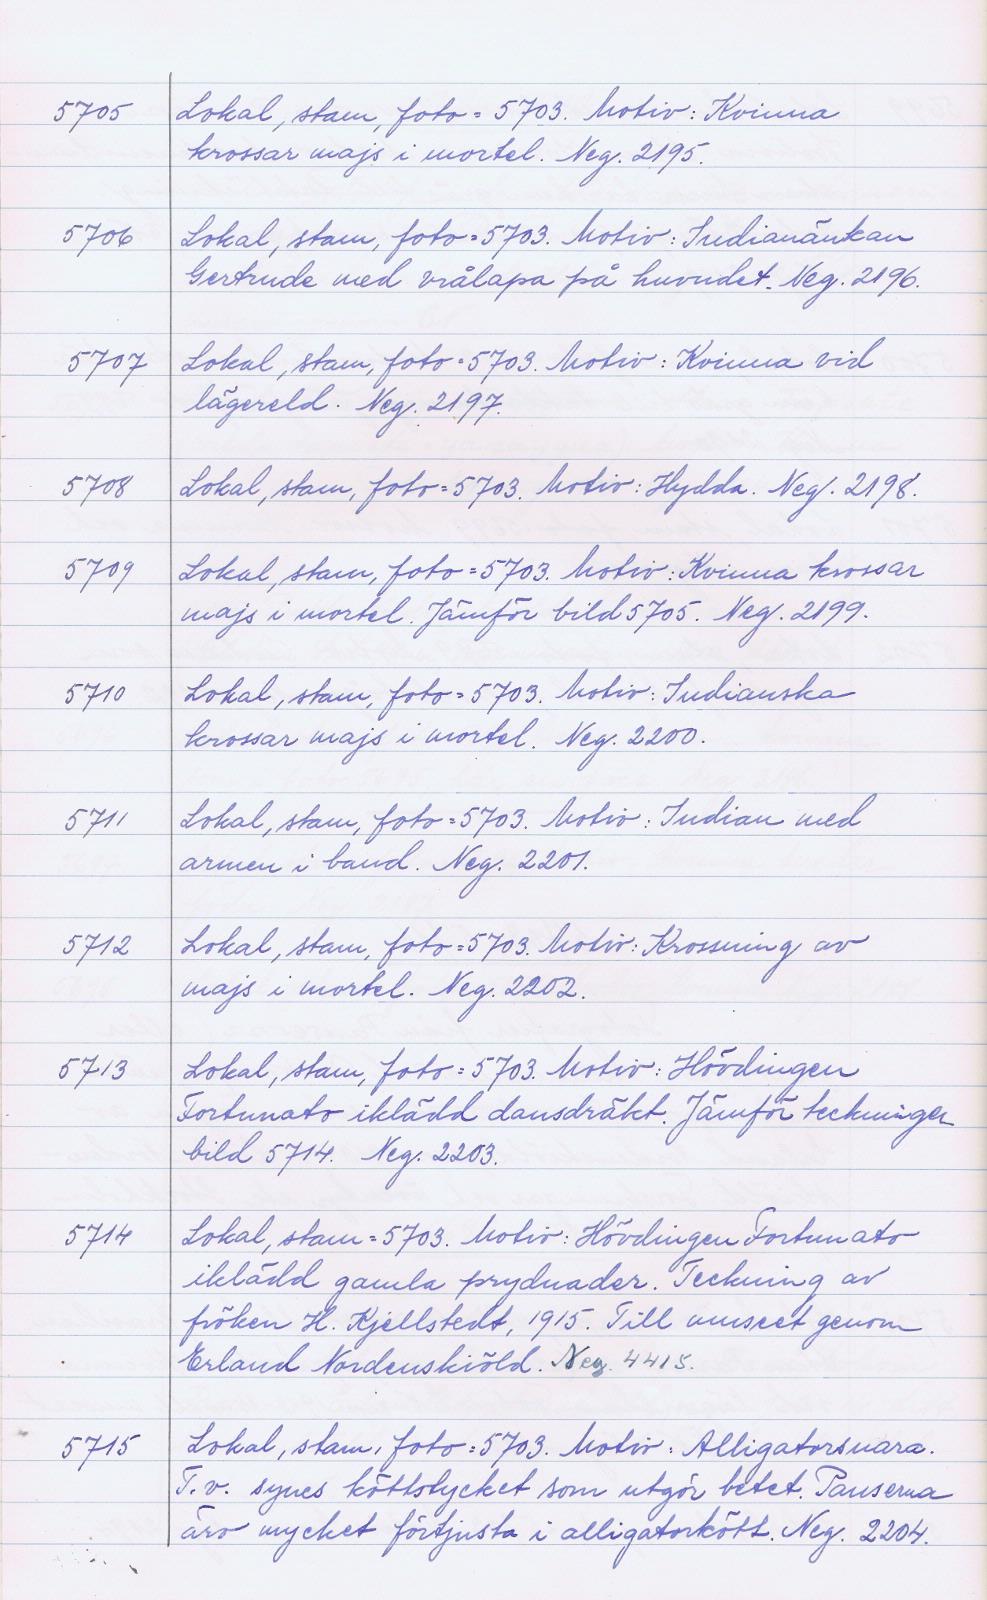 5705 Lokal, stam, foto = 5703. Motiv: Kvinna
krossar majs i mortel. Neg. 2195.
5706 Lokal, stam, foto = 5703. Motiv: Indianänkan
Gertrude med vrålapa på huvudet. Neg. 2196.
5707 Lokal, stam, foto = 5703. Motiv: Kvinna vid
lägereld. Neg. 2197.
5708 Lokal, stam, foto = 5703. Motiv: Hydda. Neg. 2198.
5709 Lokal, stam, foto = 5703. Motiv: Kvinna krossar
majs i mortel. Jämför bild 5705. Neg. 2199.
5710 Lokal, stam, foto = 5703. Motiv: Indianska
krossar majs i mortel. Neg. 2200.
5711 Lokal, stam, foto = 5703. Motiv: Indian med
armen i band. Neg. 2201.
5712 Lokal, stam, foto = 5703. Motiv: Krossning av
majs i mortel. Neg. 2202.
5713 Lokal, stam, foto = 5703. Motiv: Hövdingen
Fortunato iklädd dansdräkt. Jämför teckningen
bild 5714. Neg. 2203.
5714 Lokal, stam = 5703. Motiv: Hövdingen Fortunato
iklädd gamla prydnader. Teckning av
fröken H. Kjellstedt, 1915. Till museet genom
Erland Nordenskiöld. Neg. 4415.
5715 Lokal, stam, foto = 5703. Motiv: Alligatorsnara.
T.v. synes köttstycket som utgör betet. Panserna
äro mycket förtjusta i alligatorkött. Neg. 2204.